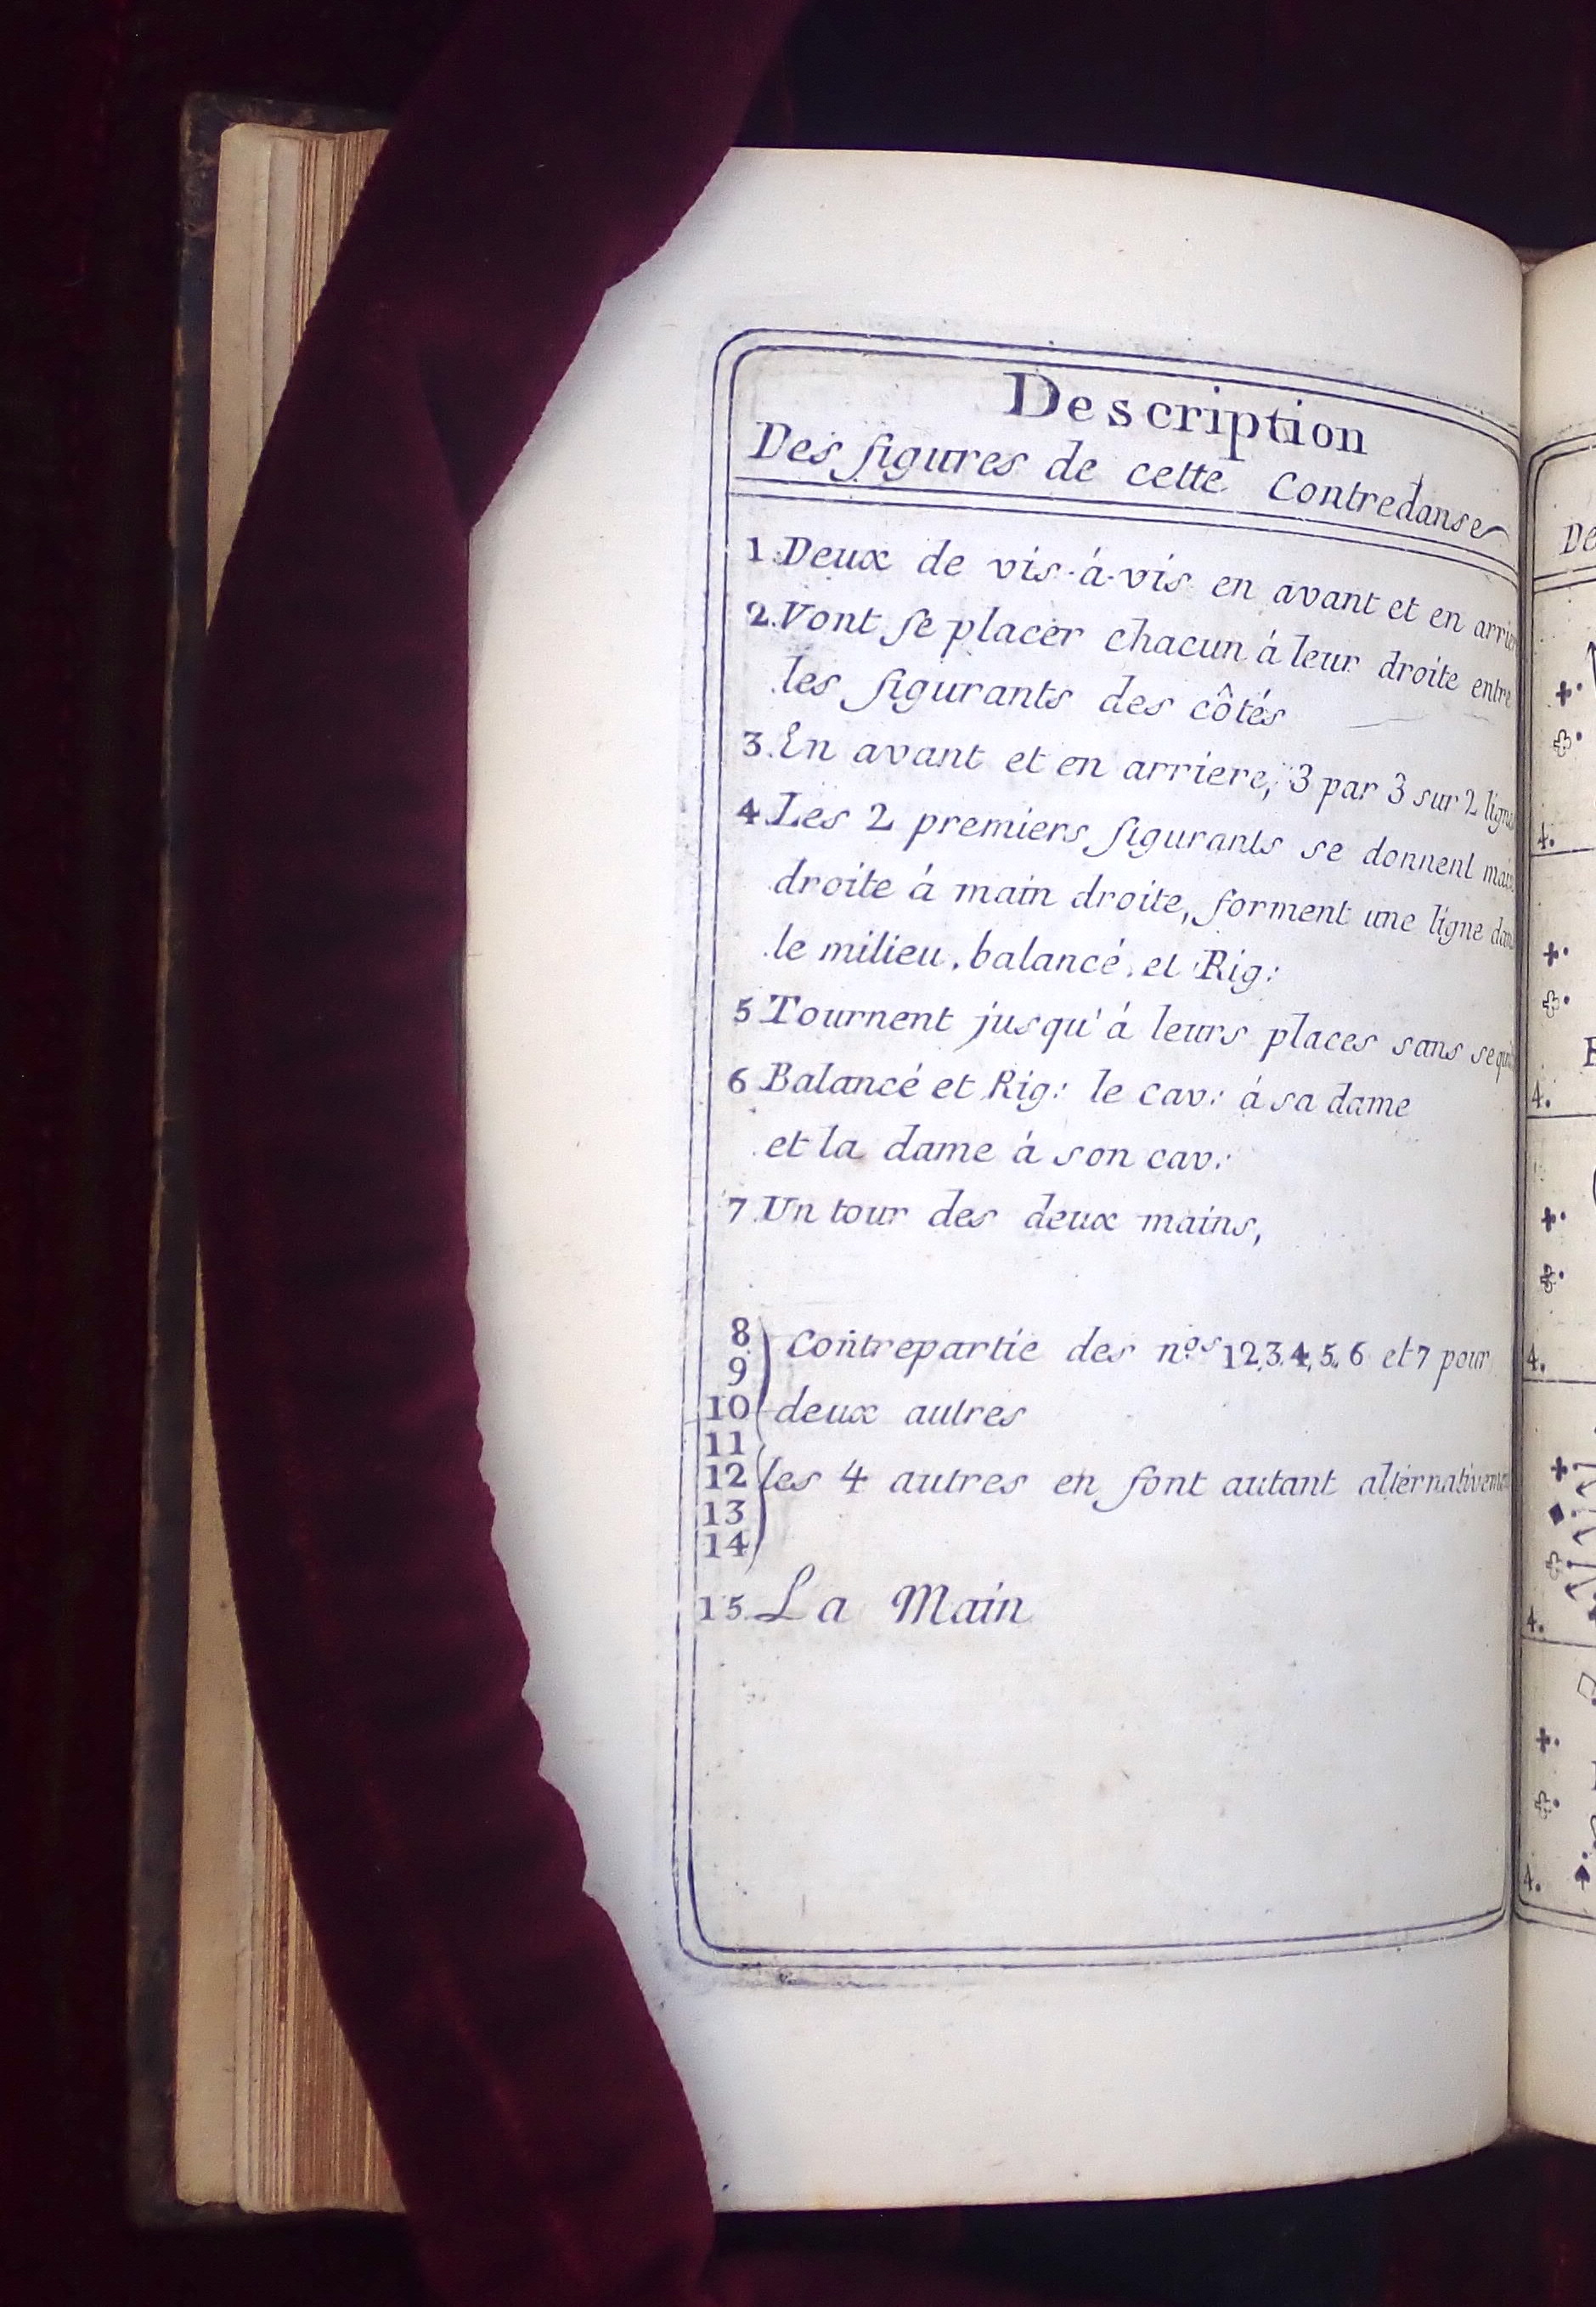 Description
Des figures de cette Contredanse
1. Deux de vis-á-vis en avant et en arrier
2. Vont se placer chacun á leur droite entre
les figurants des côtés
3. En avant et en arriere, 3 par 3 sur 2 ligne
4. Les 2 premiers figurants se donnent main
droite á main droite, forment une ligne dan
le milieu, balancé, et Rig:
5 Tournent jusqu'á leurs places sans se qui
6 Balancé et Rig: le cav: á sa dame
et la dame á son cav:
7 Un tour des deux mains,
8
9
Contrepartie des nos 1 2,3.4,5,6 et 7 pour
10
deux autres
11
12
les 4 autres en font autant alternativem
13
14
15. La Main
De
4.
4.
4.
4.
4.